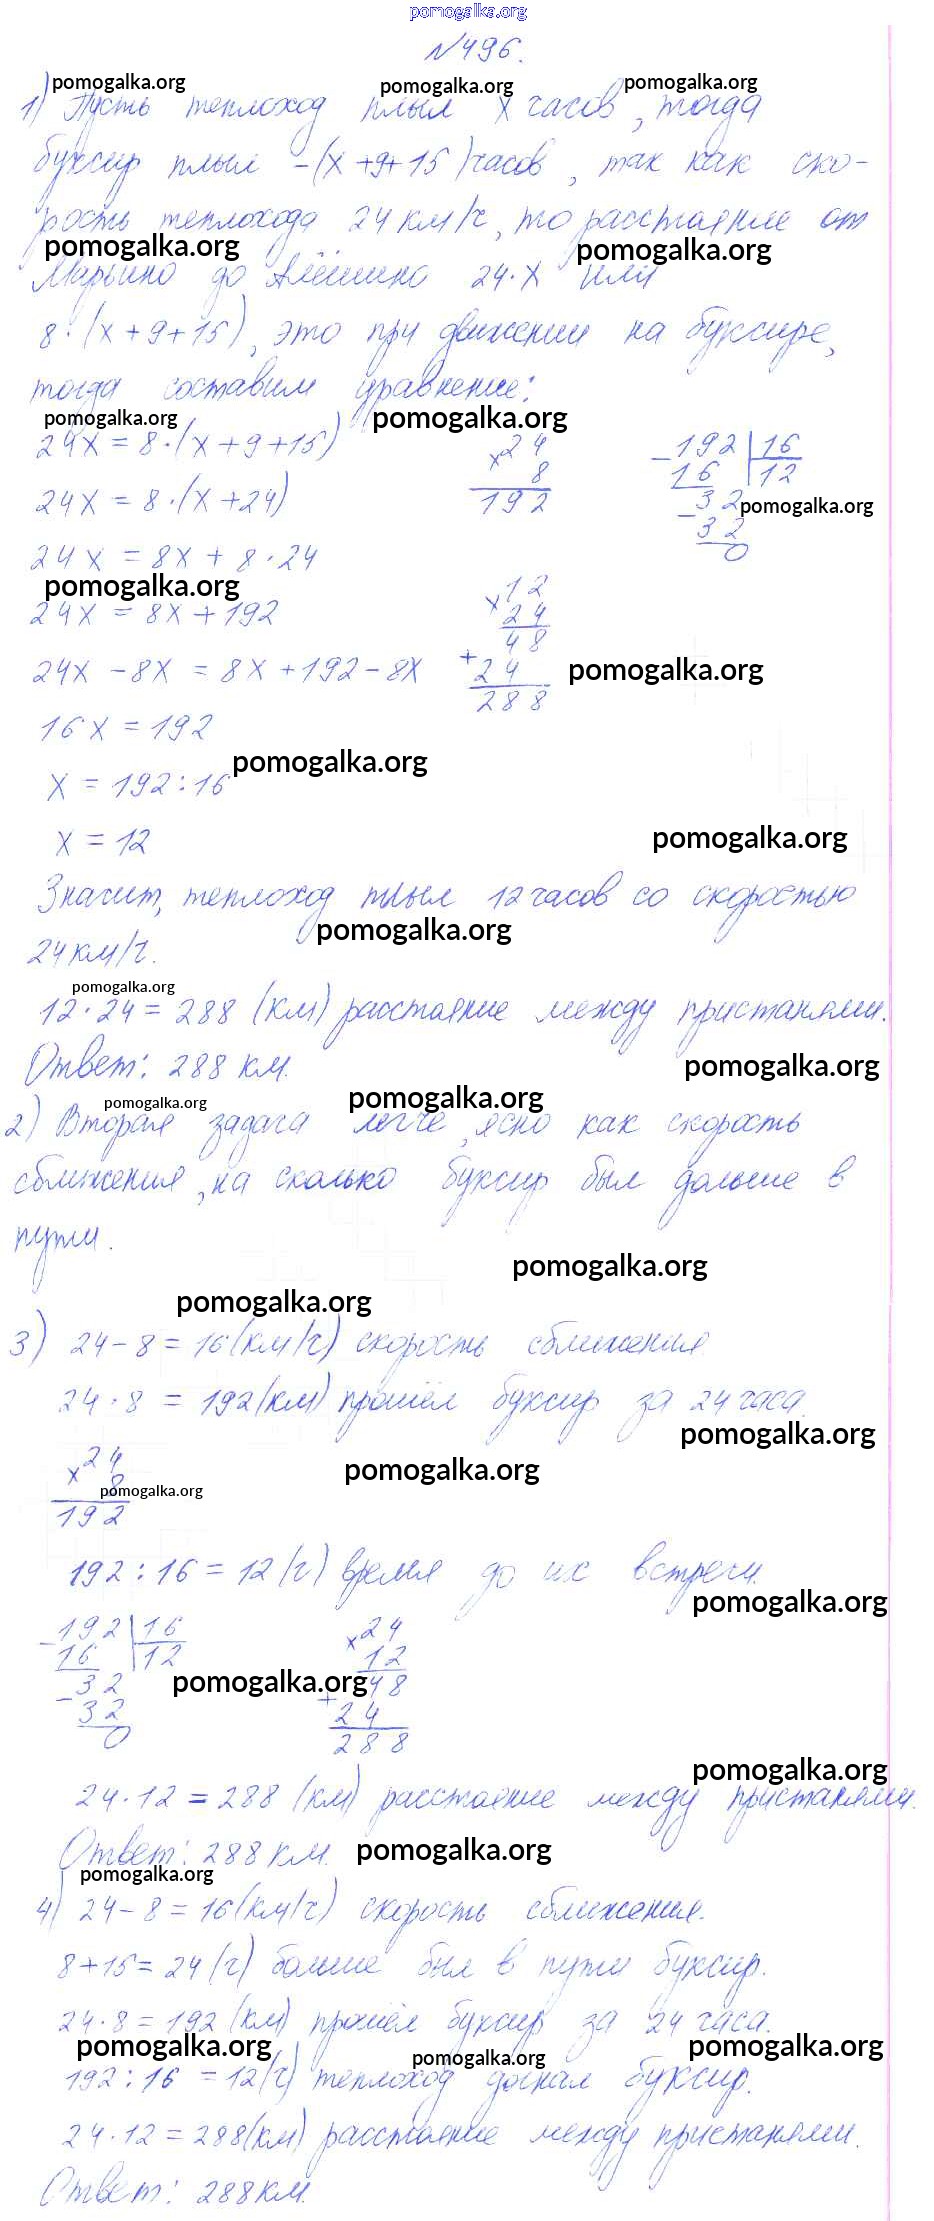 pomogalka.org
№496.
pomogalka.org pomogalka.org pomogalka.org
1) Пусть теплоход плыл x часов, тогда
буксир плыл -(x+9+15) часов, так как ско-
рость теплохода 24 км/ч, то расстояние от
pomogalka.org pomogalka.org
Марьино до Алёшино 24·x или
8·(x+9+15), это при движении на буксире,
тогда составим уравнение:
pomogalka.org pomogalka.org
24x = 8·(x+9+15)
24x = 8·(x+24)
24x = 8x + 8·24
pomogalka.org
24x = 8x + 192
24x - 8x = 8x + 192 - 8x
16x = 192
x = 192:16
x = 12
×24
8
192
-192|16
16 |12
-32
32
0
pomogalka.org
×12
24
48
+24
288
pomogalka.org
pomogalka.org
pomogalka.org
Значит, теплоход плыл 12 часов со скоростью
24 км/ч.
pomogalka.org
pomogalka.org
12·24 = 288 (км) расстояние между пристанями.
Ответ: 288 км.
pomogalka.org
pomogalka.org pomogalka.org
2) Вторая задача легче, ясно как скорость
сближения, на сколько буксир был дольше в
пути.
pomogalka.org
pomogalka.org
3) 24-8 = 16 (км/ч) скорость сближения
24·8 = 192 (км) прошёл буксир за 24 часа.
pomogalka.org
×24
8
192
pomogalka.org
pomogalka.org
192:16 = 12 (ч) время до их встречи.
pomogalka.org
-192|16
16 |12
-32
32
0
×24
12
48
+24
288
pomogalka.org
pomogalka.org
24·12 = 288 (км) расстояние между пристанями.
Ответ: 288 км.
pomogalka.org
pomogalka.org
4) 24-8 = 16 (км/ч) скорость сближения.
8+15 = 24 (ч) больше был в пути буксир.
24·8 = 192 (км) прошёл буксир за 24 часа.
pomogalka.org pomogalka.org pomogalka.org
192:16 = 12 (ч) теплоход догнал буксир.
24·12 = 288 (км) расстояние между пристанями.
Ответ: 288 км.